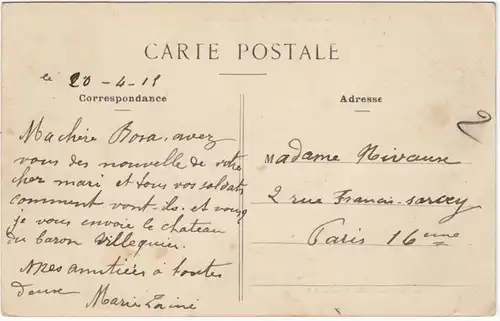 CARTE POSTALE
le 20-4-15
Correspondance
Ma chère Bosa, avez
vous des nouvelle de votre
cher mari et tous vos soldats
comment vont ils. et vous
je vous envoie le chateau
du baron Villequier.
Mes amitiés à toutes
deux Marie
Adresse
Madame Nivause
2 rue Francis-sarcey
Paris 16eme